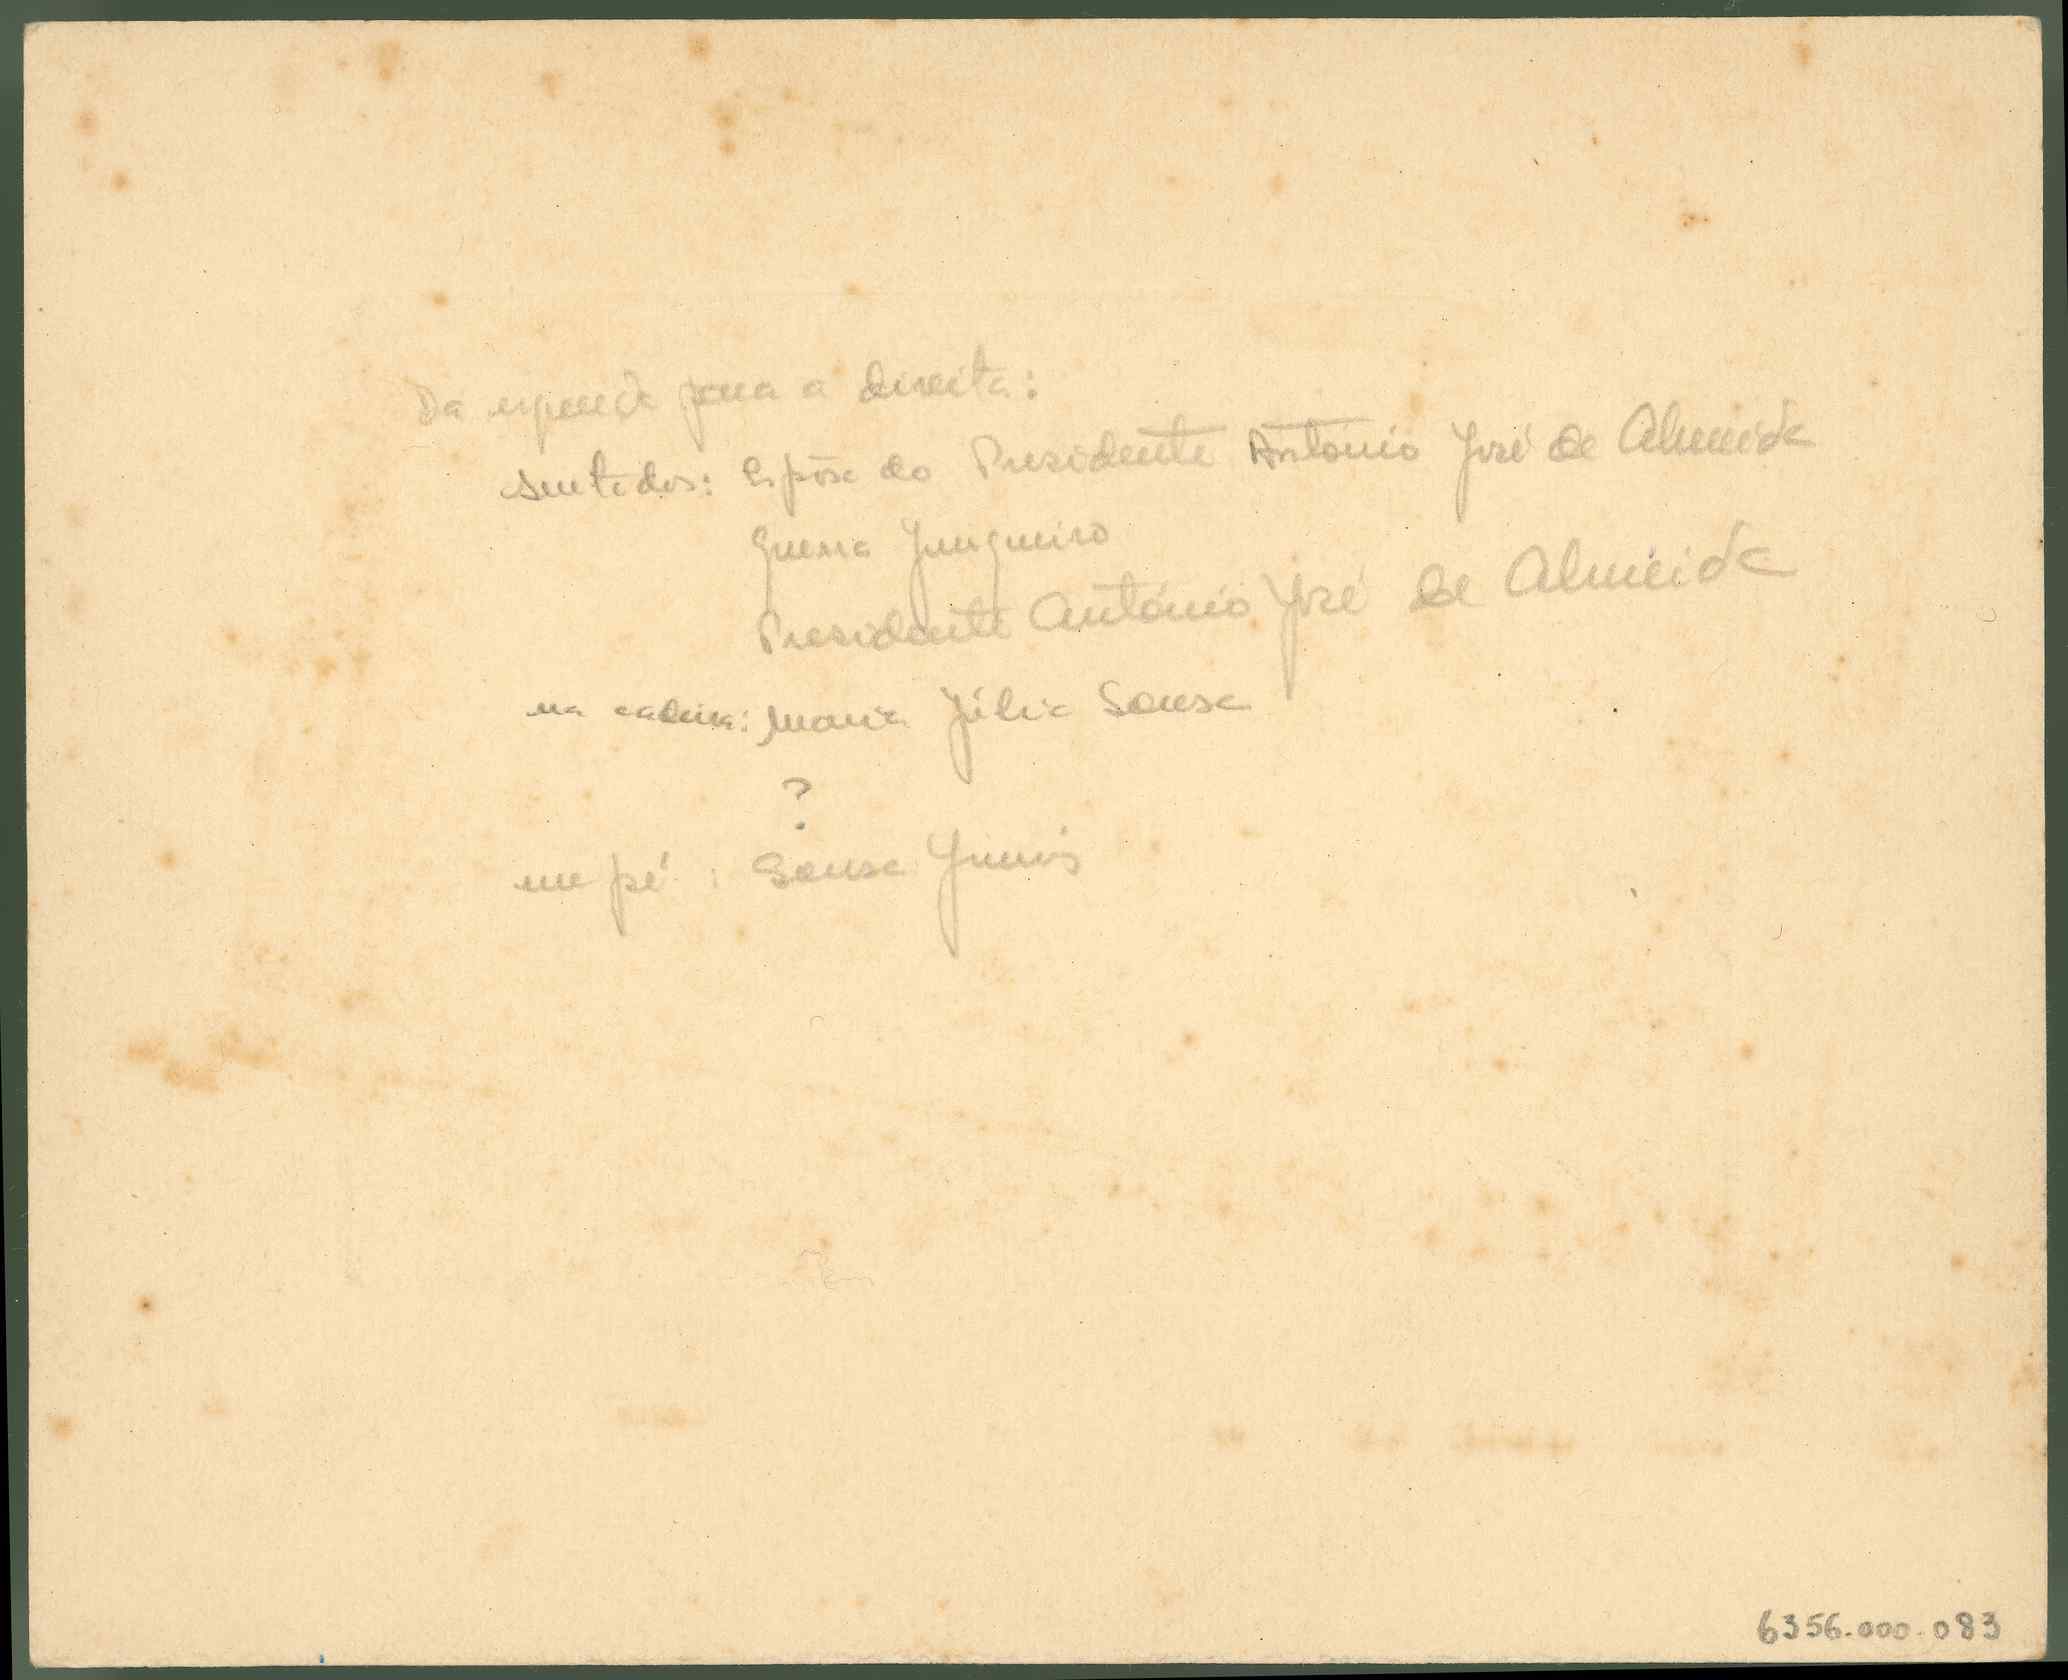 Da esquerda para a direita:
sentados: Espôsa do Presidente António José de Almeida
Guerra Junqueiro
Presidente António José de Almeida
na cadeira: Maria Júlia Sousa
?
em pé: Sousa Júnior
6356.000.083